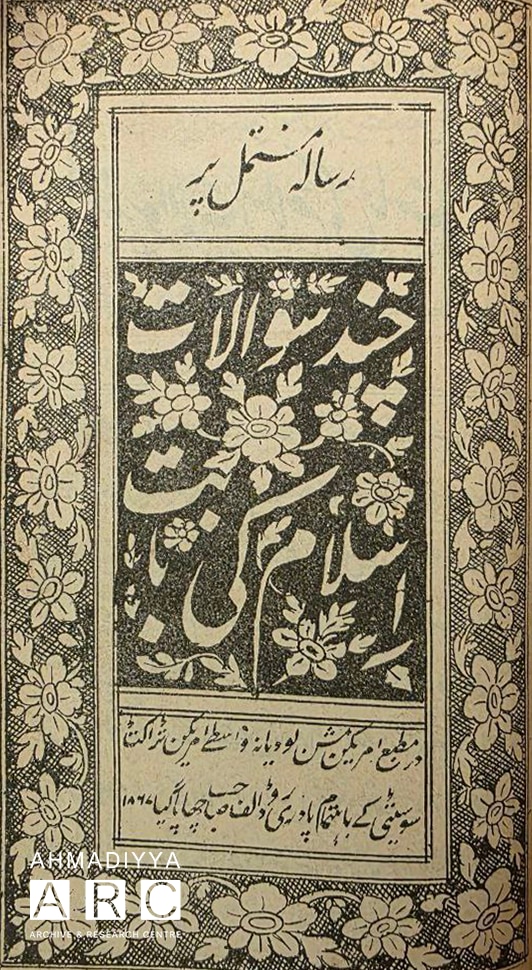 رسالہ مشتمل پر
چند سوالات
اسلام کی بابت
در مطبع امریکن مشن لودیانہ واسطے امریکن ٹراکٹ
سوسیٹی کے باہتمام پادری روڈالف صاحب چھاپا گیا ۱۸۶۷
AHMADIYYA
ARC
ARCHIVE & RESEARCH CENTRE